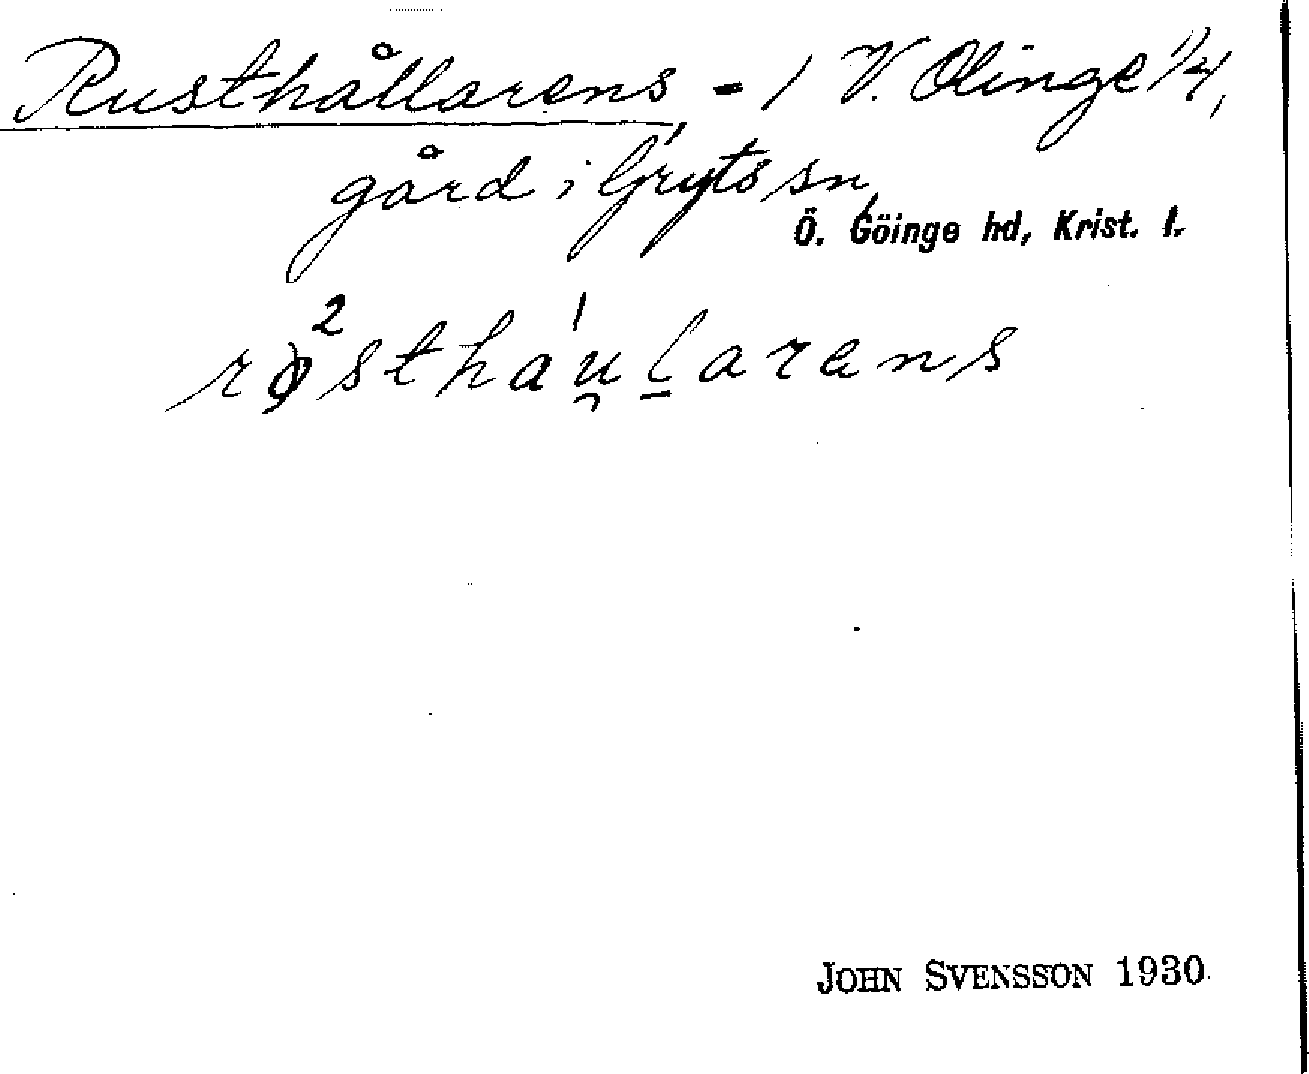 Rusthållarens - 1 V. Olinge 1/4,
gård i Gryts sn,
Ö. Göinge hd, Krist. l.
røsthau̯larens
JOHN SVENSSON 1930.